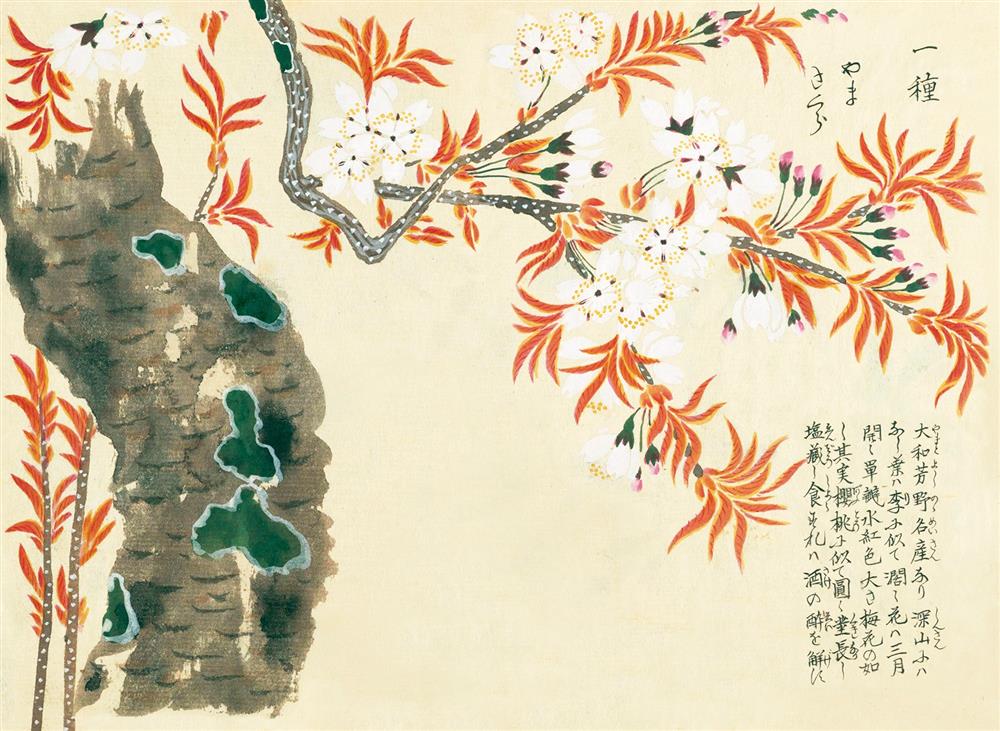 一種
やま
さくら
大和芳野名産なり深山にハ
多し葉ハ李に似て濶し花ハ三月
開く單瓣水紅色大さ梅花の如
し其実櫻桃に似て圓く莖長し
塩藏し食すれハ酒の酔を解す